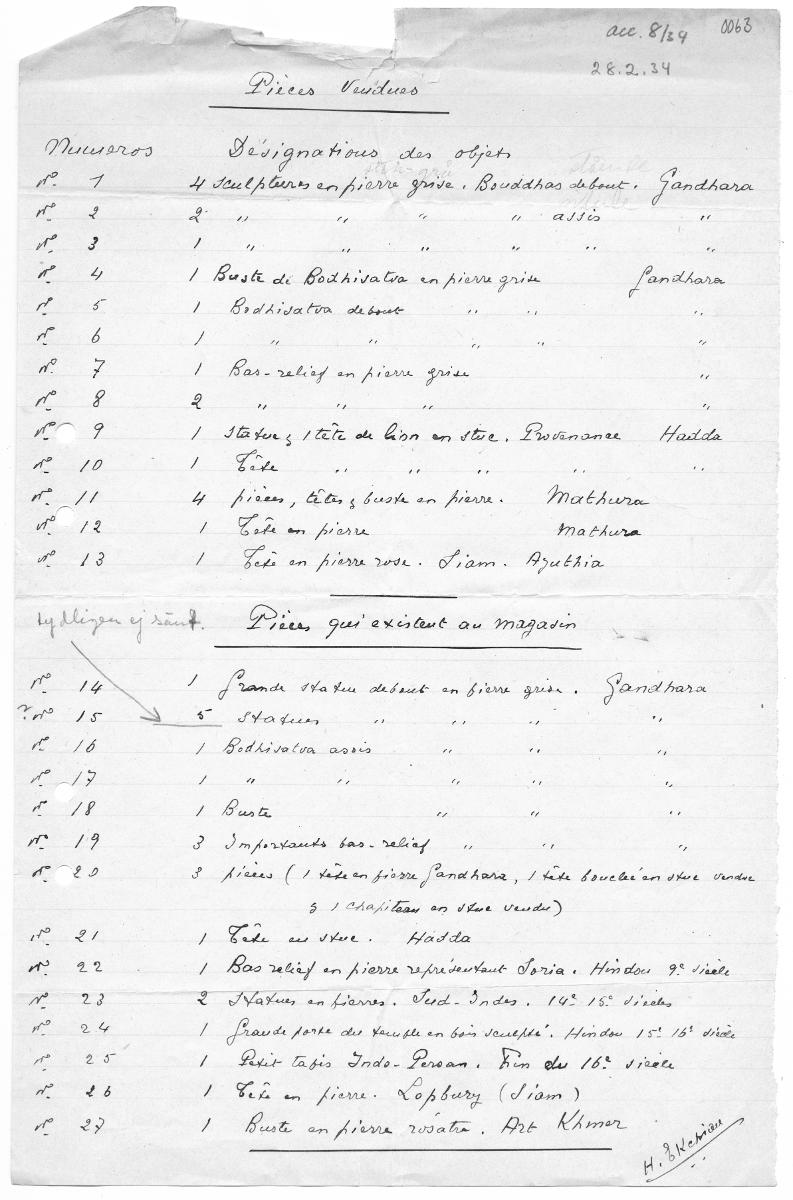 acc. 8/34 0063
28.2.34
Pièces Vendues
Numeros Désignations des objets
No. 1 4 sculptures en pierre grise. Bouddhas debout. Gandhara
No. 2 2 " " " " assis "
No. 3 1 " " " " " "
No. 4 1 Buste de Bodhisatva en pierre grise Gandhara
No. 5 1 Bodhisatva debout " " "
No. 6 1 " " " " "
No. 7 1 Bas-relief en pierre grise "
No. 8 2 " " " "
No. 9 1 statue & 1 tête de lion en stuc. Provenance Hadda
No. 10 1 Tête " " " " "
No. 11 4 pièces, têtes & buste en pierre. Mathura
No. 12 1 Tête en pierre Mathura
No. 13 1 Tête en pierre rose. Siam. Ayuthia
tydligen ej sänt.
Pièces qui existent au magasin
No. 14 1 Grande statue debout en pierre grise. Gandhara
? No. 15 5 statues " " " "
No. 16 1 Bodhisatva assis " " "
No. 17 1 " " " " "
No. 18 1 Buste " " "
No. 19 3 Importants bas-relief " " "
No. 20 3 pièces (1 tête en pierre Gandhara, 1 tête bouclée en stuc vendue
& 1 chapiteau en stuc vendu)
No. 21 1 Tête en stuc. Hadda
No. 22 1 Bas relief en pierre représentant Soria. Hindou 9e siècle
No. 23 2 statues en pierres. Sud-Indes. 14e 15e siècles
No. 24 1 Grande porte du temple en bois sculpté. Hindou 15e 16e siècle
No. 25 1 Petit tapis Indo-Persan. Fin du 16e siècle
No. 26 1 Tête en pierre. Lopbury (Siam)
No. 27 1 Buste en pierre rosâtre. Art Khmer
H. Ekchian